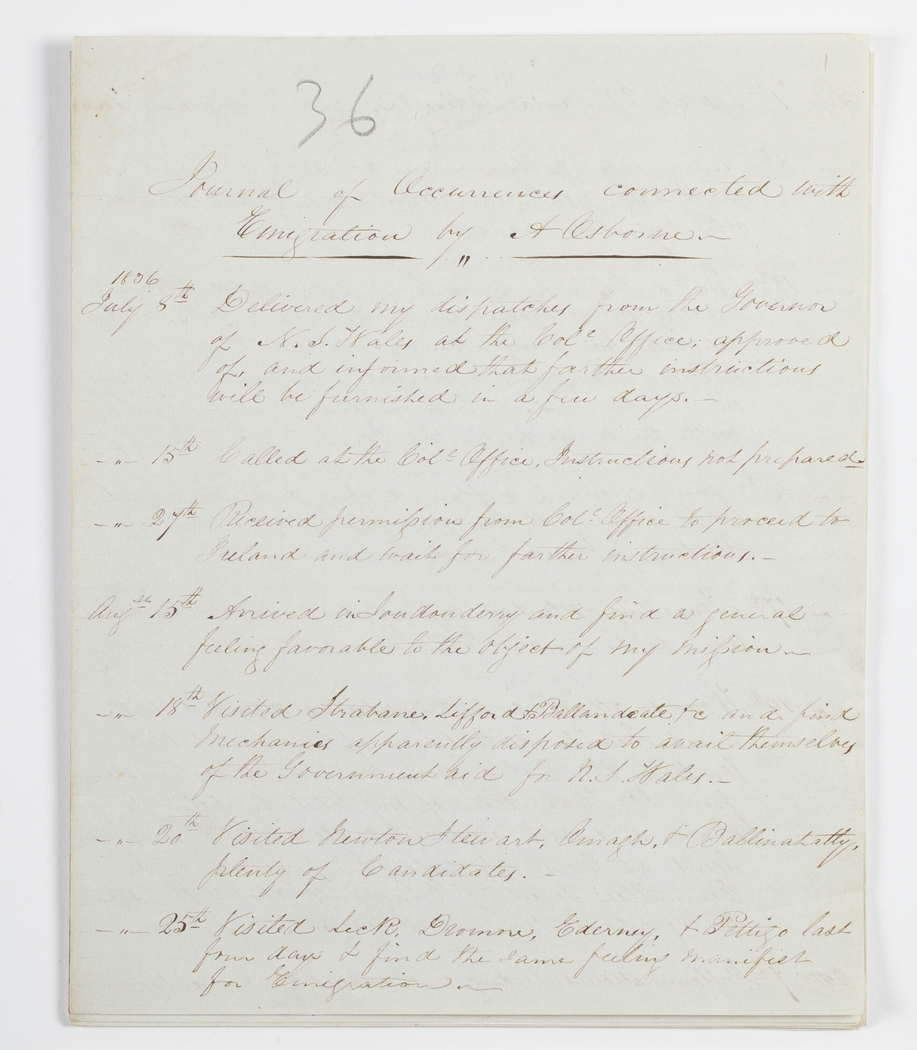 1
36
Journal of Occurrences connected with
Emigration by A Osborne
1836
July 8th Delivered my dispatches from the Governor
of N. S. Wales at the Coll Office; approved
of, and informed that farther instructions
will be furnished in a few days.—
-"- 15th Called at the Coll Office, Instructions not prepared—
-"- 27th Received permission from Coll Office to proceed to
Ireland and wait for farther instructions.—
Augst 15th Arrived in Londonderry and find a general
feeling favorable to the object of my mission—
-"- 18th Visited Strabane, Lifford & Ballandeate &c and find
Mechanics apparently disposed to avail themselves
of the Government aid for N. S. Wales.—
-"- 20th Visited Newton Stewart, Omagh, & Ballinahatty,
plenty of Candidates.—
-"- 25th Visited Leck, Dromore, Ederney, & Pettigo last
four days & find the same feeling manifest
for Emigration—